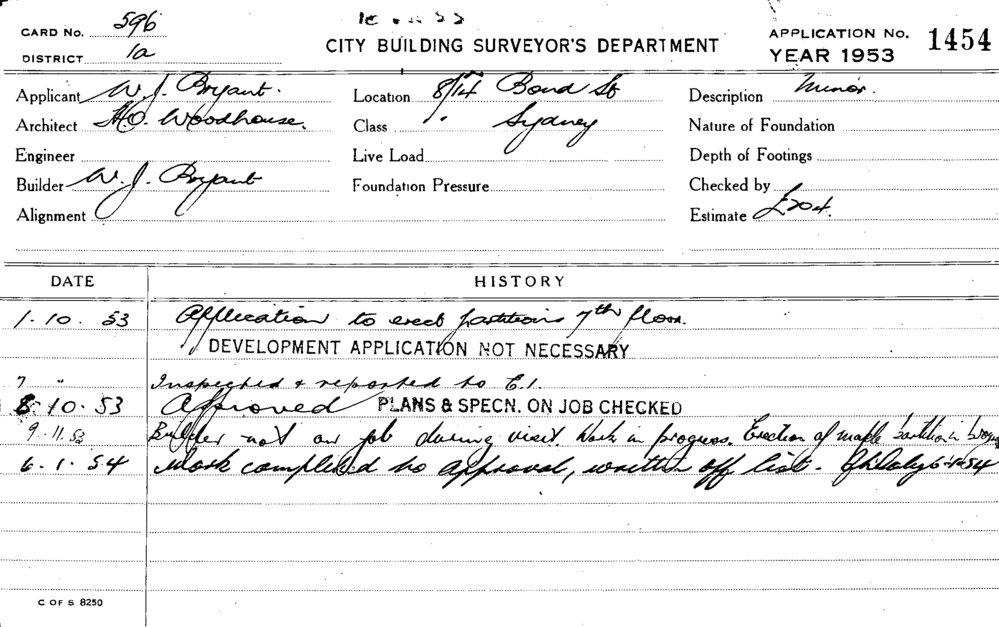 CARD No. 596
DISTRICT 1a
CITY BUILDING SURVEYOR'S DEPARTMENT
APPLICATION No. 1454
YEAR 1953
Applicant W. J. Bryant.
Architect H.O. Woodhouse.
Engineer
Builder W. J. Bryant
Alignment
Location 8/14 Bond St
Class Sydney
Live Load
Foundation Pressure
Description Minor.
Nature of Foundation
Depth of Footings
Checked by
Estimate £204.
DATE HISTORY
1.10.53 Application to erect partitions 7th floor.
DEVELOPMENT APPLICATION NOT NECESSARY
7 " Inspected & reported to E.I.
8.10.53 Approved PLANS & SPECN. ON JOB CHECKED
9.11.53 Builder not on job during visit. Work in progress. Erection of maple partition in
6.1.54 Work completed to approval, written off list. 6-1-54
C OF S 8250